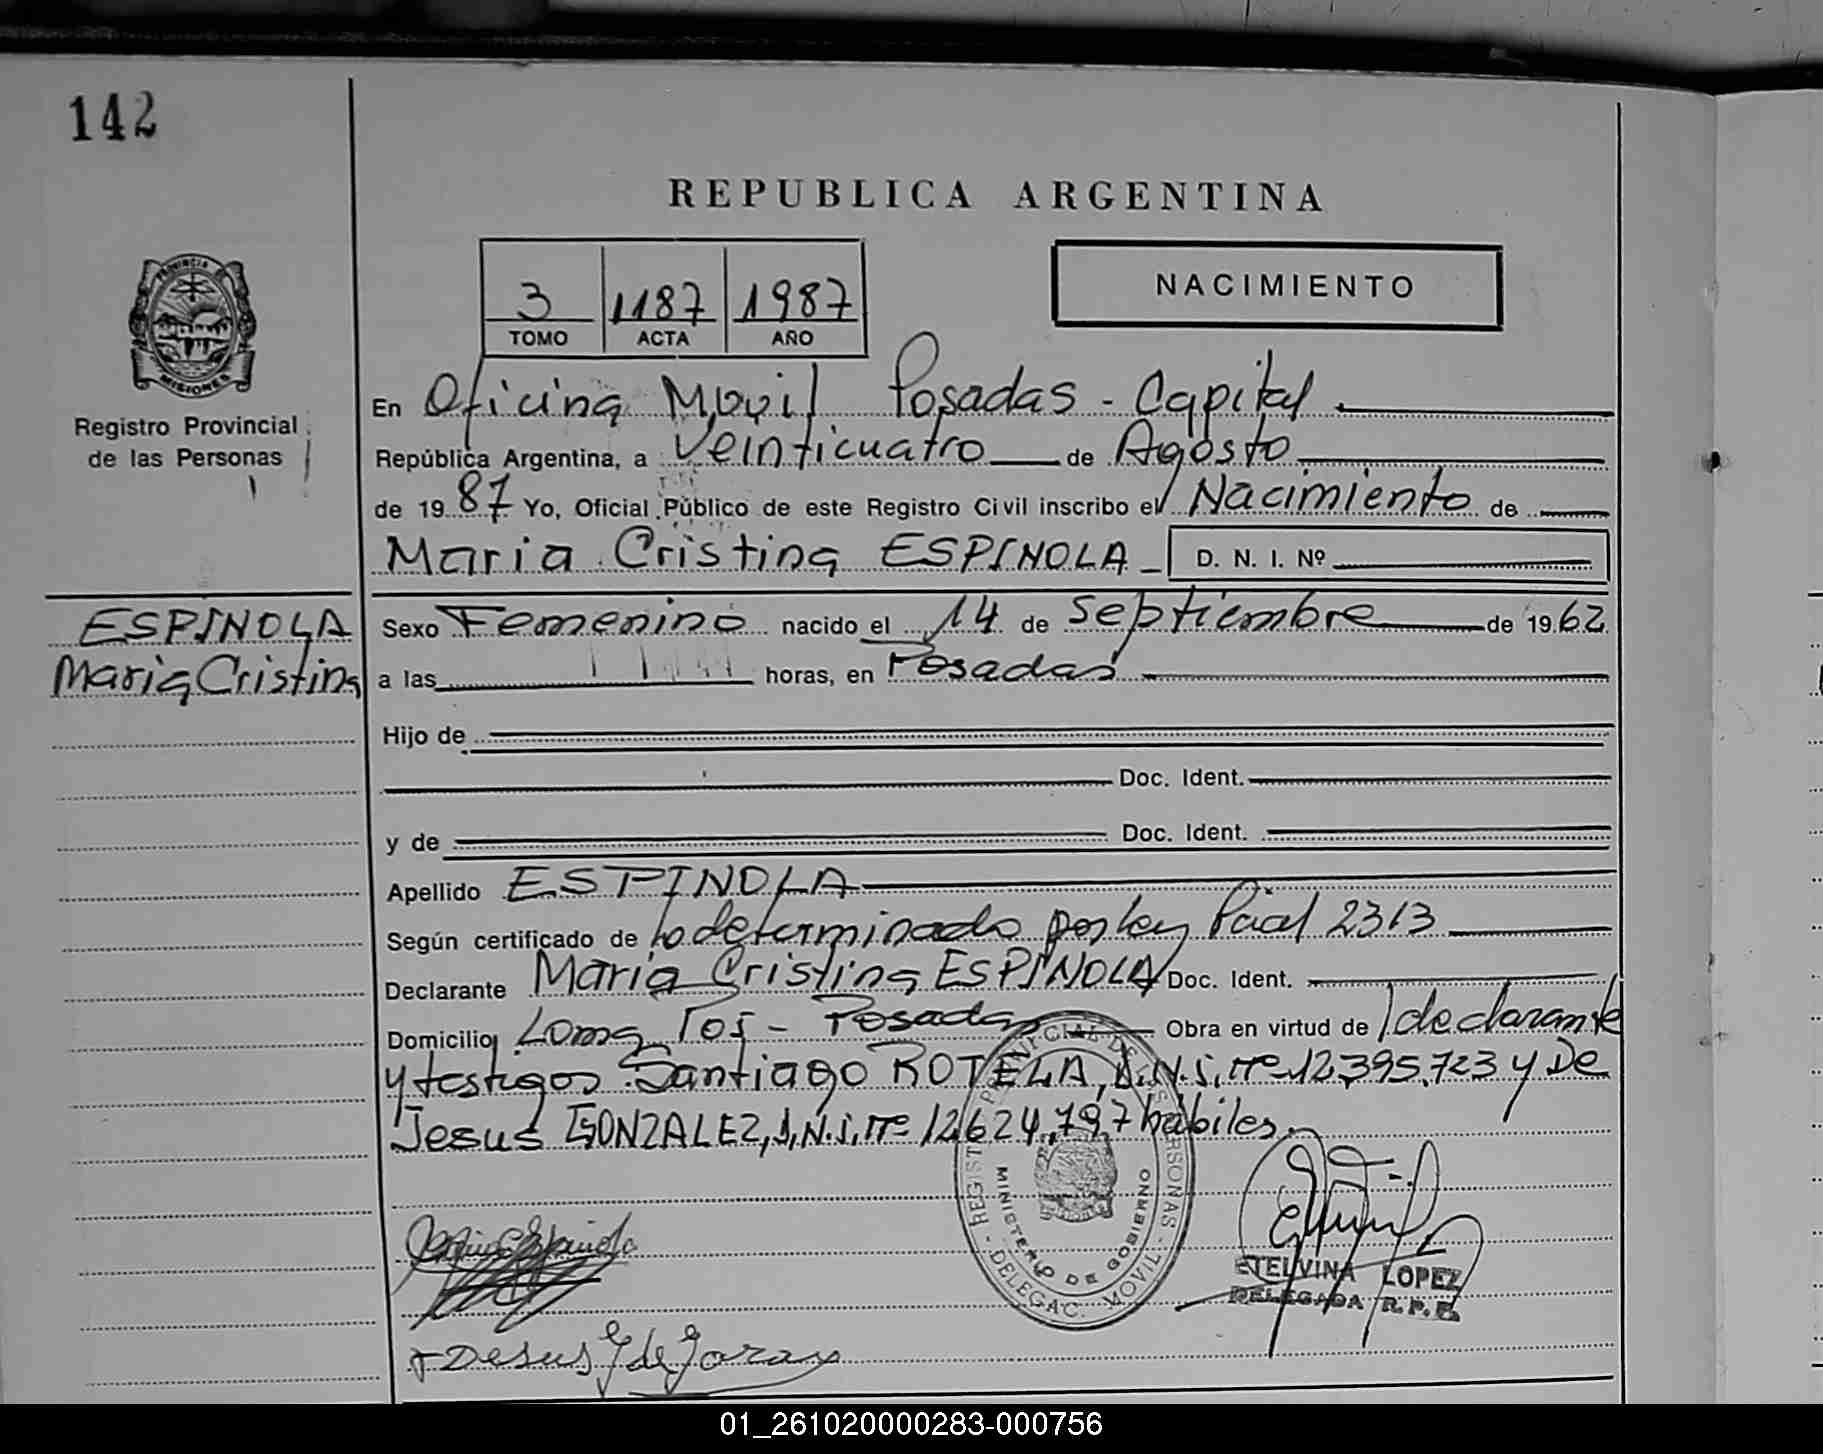 142
REPUBLICA ARGENTINA
PROVINCIA DE
MISIONES
Registro Provincial
de las Personas
3 1187 1987
TOMO ACTA AÑO
NACIMIENTO
En Oficina Movil Posadas - Capital
República Argentina, a veinticuatro de Agosto
de 1987 Yo, Oficial Público de este Registro Civil inscribo el Nacimiento de
Maria Cristina ESPINOLA D. N. I. Nº
ESPINOLA
Maria Cristina
Sexo Femenino nacido el 14 de septiembre de 1962
a las horas, en Posadas
Hijo de
Doc. Ident.
y de Doc. Ident.
Apellido ESPINOLA
Según certificado de lo determinado por ley Pcial 2313
Declarante Maria Cristina ESPINOLA Doc. Ident.
Domicilio Loma Poi - Posadas Obra en virtud de l declarante
y testigos Santiago ROTELA, D.N.I. Nº 12.395.723 y De
Jesus GONZALEZ, D.N.I. Nº 12.624.797 hábiles.
MINISTERIO DE GOBIERNO
DELEGAC. MOVIL
ETELVINA LOPEZ
DELEGADA R.P.P.
Desus G de Garay
01_261020000283-000756